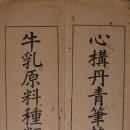 心構丹青筆
牛乳原料種